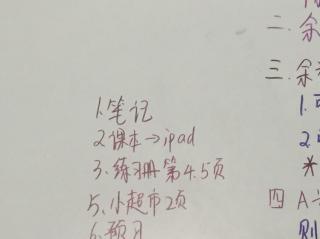 1.笔记
2.课本→ipad
3.练习册第4.5页
5.小超市2页
6.预习
二.余
三.余
1.
2.
*
四 A
则